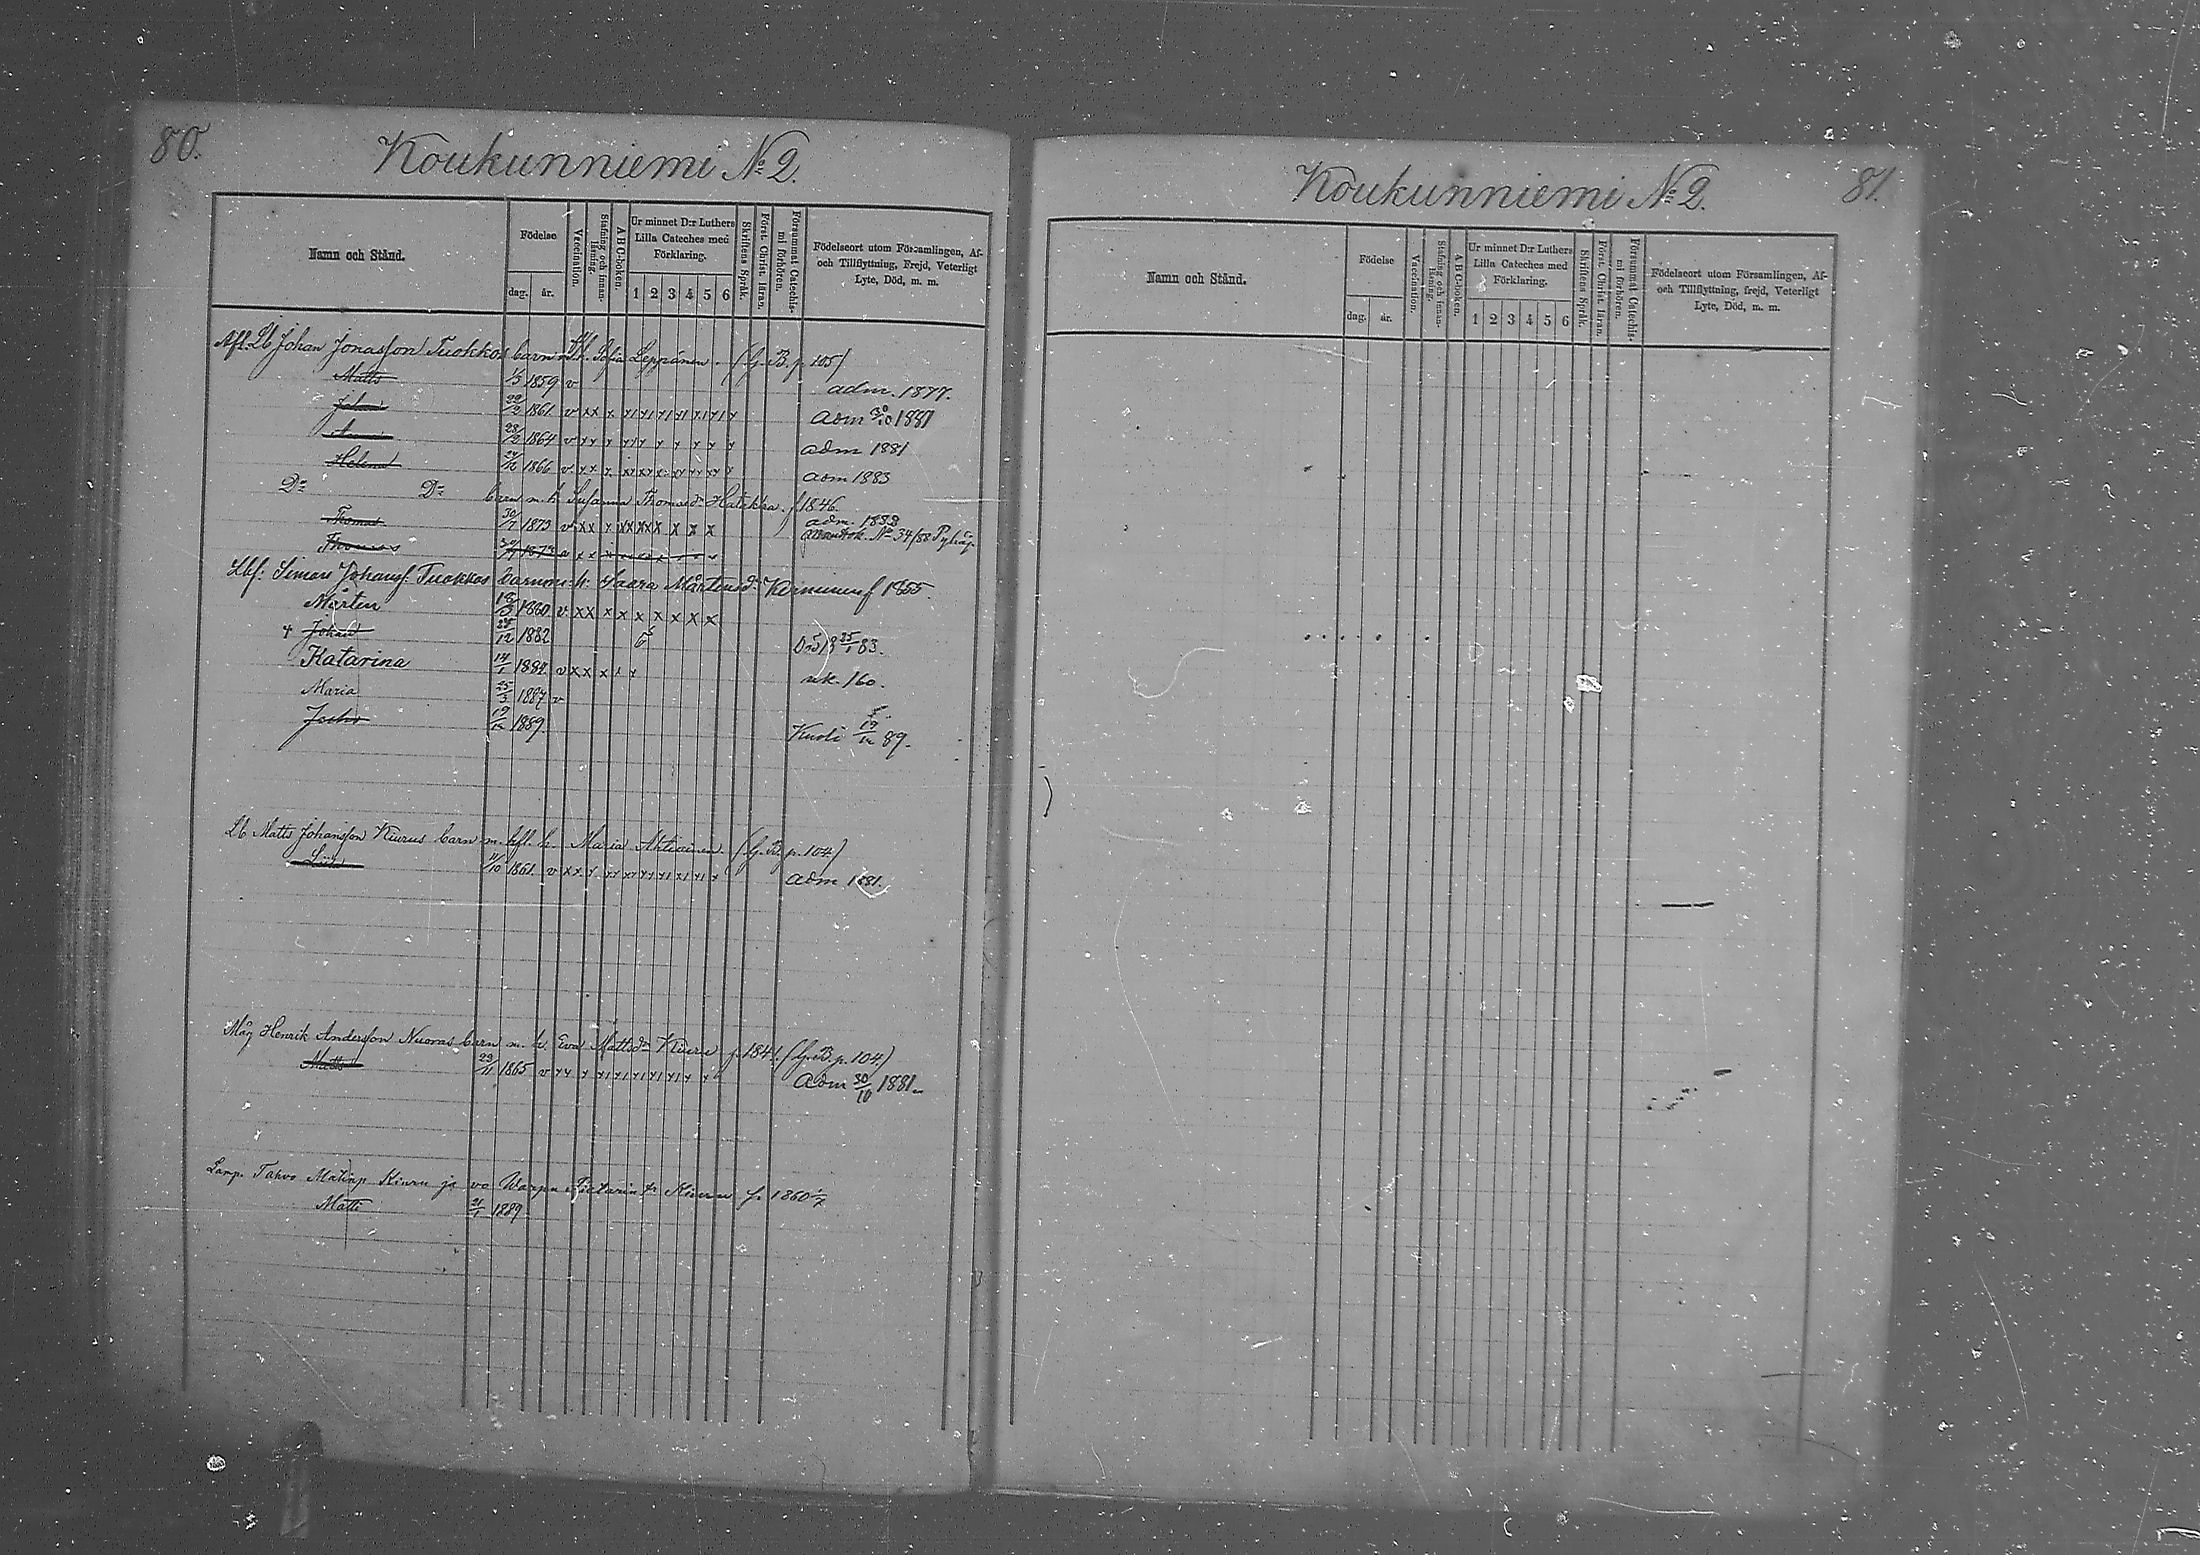 80.
Koukunniemi No 2.
Namn och Stånd.
Födelse
dag.
år.
Vaccination.
Stafning och innanläsning.
A B C-boken.
Ur minnet D:r Luthers Lilla Cateches med Förklaring.
1 2 3 4 5 6
Skriftens Språk.
Först. Christ. läran.
Försummat Catechismi förhören.
Födelseort utom Församlingen, Af- och Tillflyttning, Frejd, Veterligt Lyte, Död, m. m.
Afl. Lb Johan Jonasson Tuokkos barn m. h. Sofia Leppänen. (G. B. p. 105)
Matts 1/3 1859 v adm. 1877.
Johan 22/2 1861 v x x x x x x x x x x Adm 30/10 1881
Anna 28/2 1864 v x x x x x x x x x x adm 1881
Helena 24/12 1866 v x x x x x x x x x x adm 1883
Do Do barn m. h. Susanna Thomasdr Hatakka f 1846.
Thomas 30/7 1873 v x x x x x x x x x adm. 1888
No 34/88
Thomas 30/7 1873 v x x x x x x x x x
Lbf: Simon Johansf: Tuokkos barn m. h: Saara Mårtensdr f 1855.
Mårten 18/3 1880 v x x x x x x x x x
Johan 12 1882 Död 25/1 83.
Katarina 14/1 1884 v x x x x x rk. 160.
Maria 1887 v
Juho 19/12 1889. Kuoli 19/12 89.
Lb Matts Johansson Kiurus barn m. h. Maria Ahtiainen (G. B. p. 104)
10 1861 v x x x x x x x x x x adm 1881.
Henrik Andersson Nuoras barn m. h. Eva Mattsdr Kiuru f. 1841. (G. B. p. 104)
Matts 23/11 1865 v x x x x x x x x x x Adm 30/10 1881.
Lamp. Tahvo Matinp Kiuru ja vo Warpu Kiuru s. 1860 1/7
Matti 21/1 1889.
Koukunniemi No 2.
81.
Namn och Stånd.
Födelse
dag.
år.
Vaccination.
Stafning och innanläsning.
A B C-boken.
Ur minnet D:r Luthers Lilla Cateches med Förklaring.
1 2 3 4 5 6
Skriftens Språk.
Först. Christ. läran.
Försummat Catechismi förhören.
Födelseort utom Församlingen, Af- och Tillflyttning, frejd, Veterligt Lyte, Död, m. m.